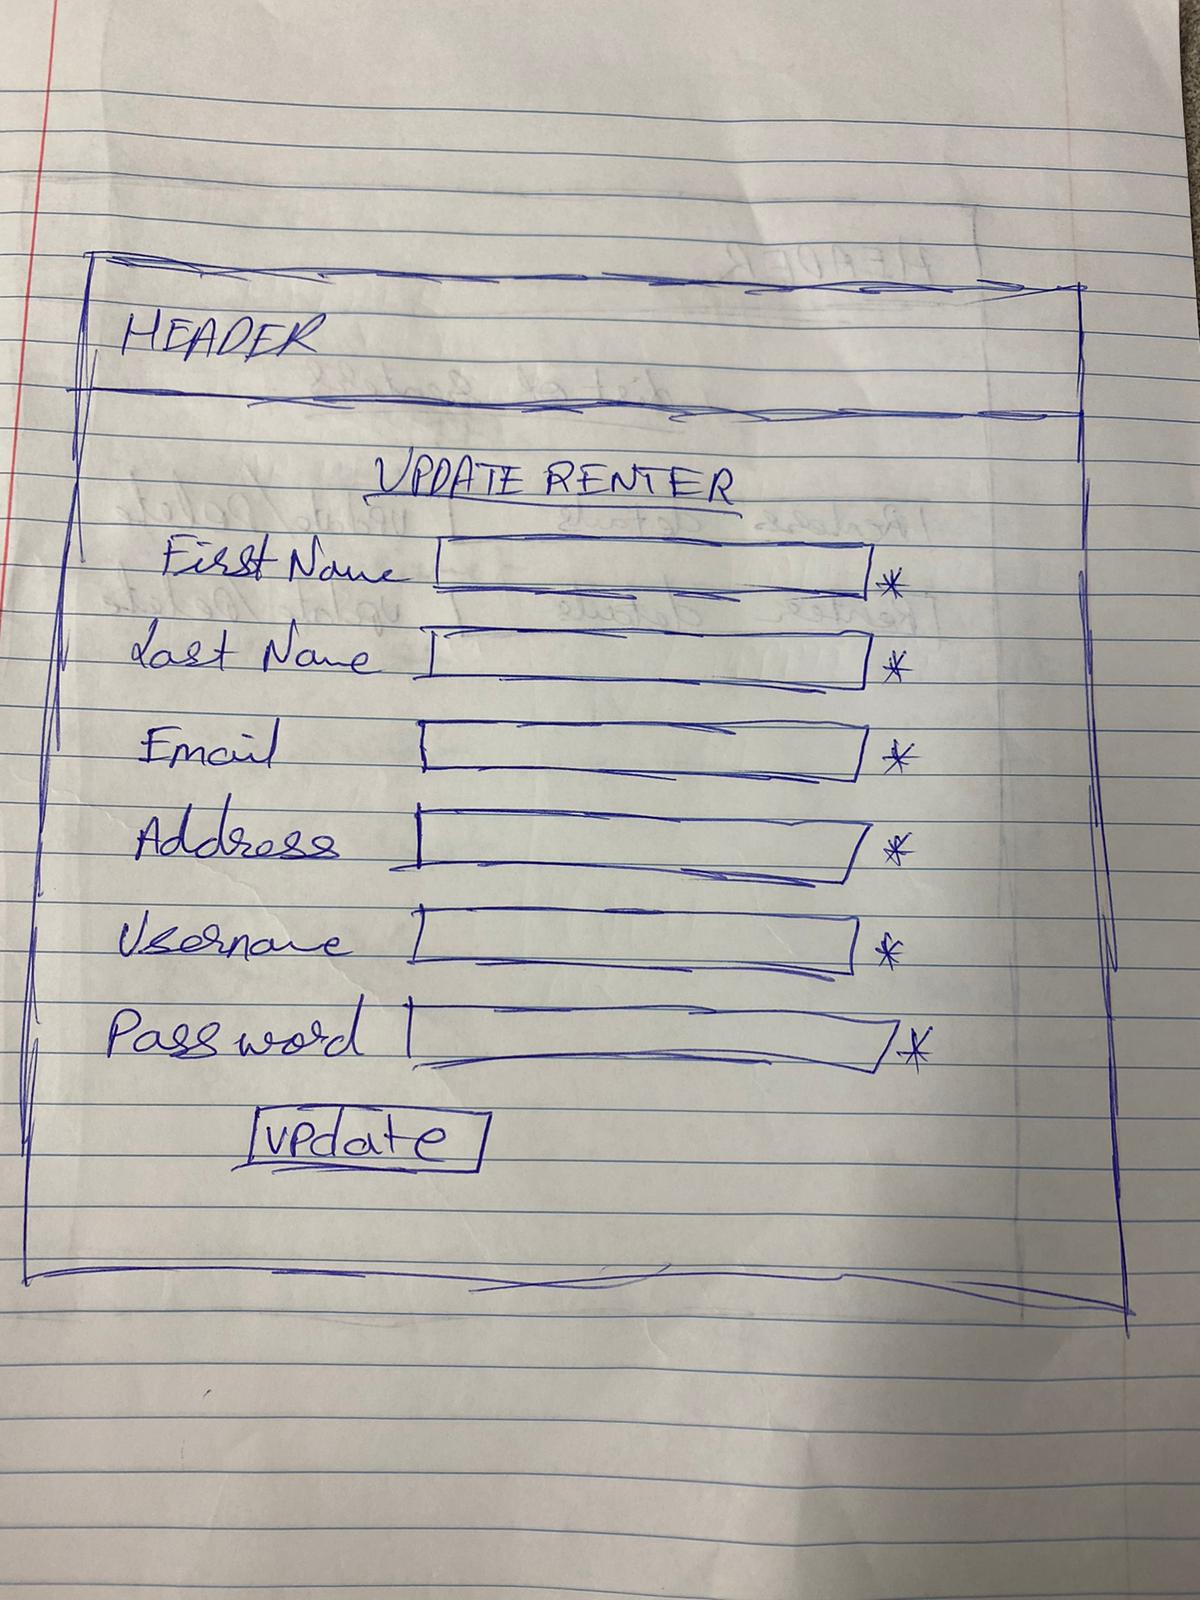 HEADER
UPDATE RENTER
First Name *
Last Name *
Email *
Address *
Username *
Password *
update